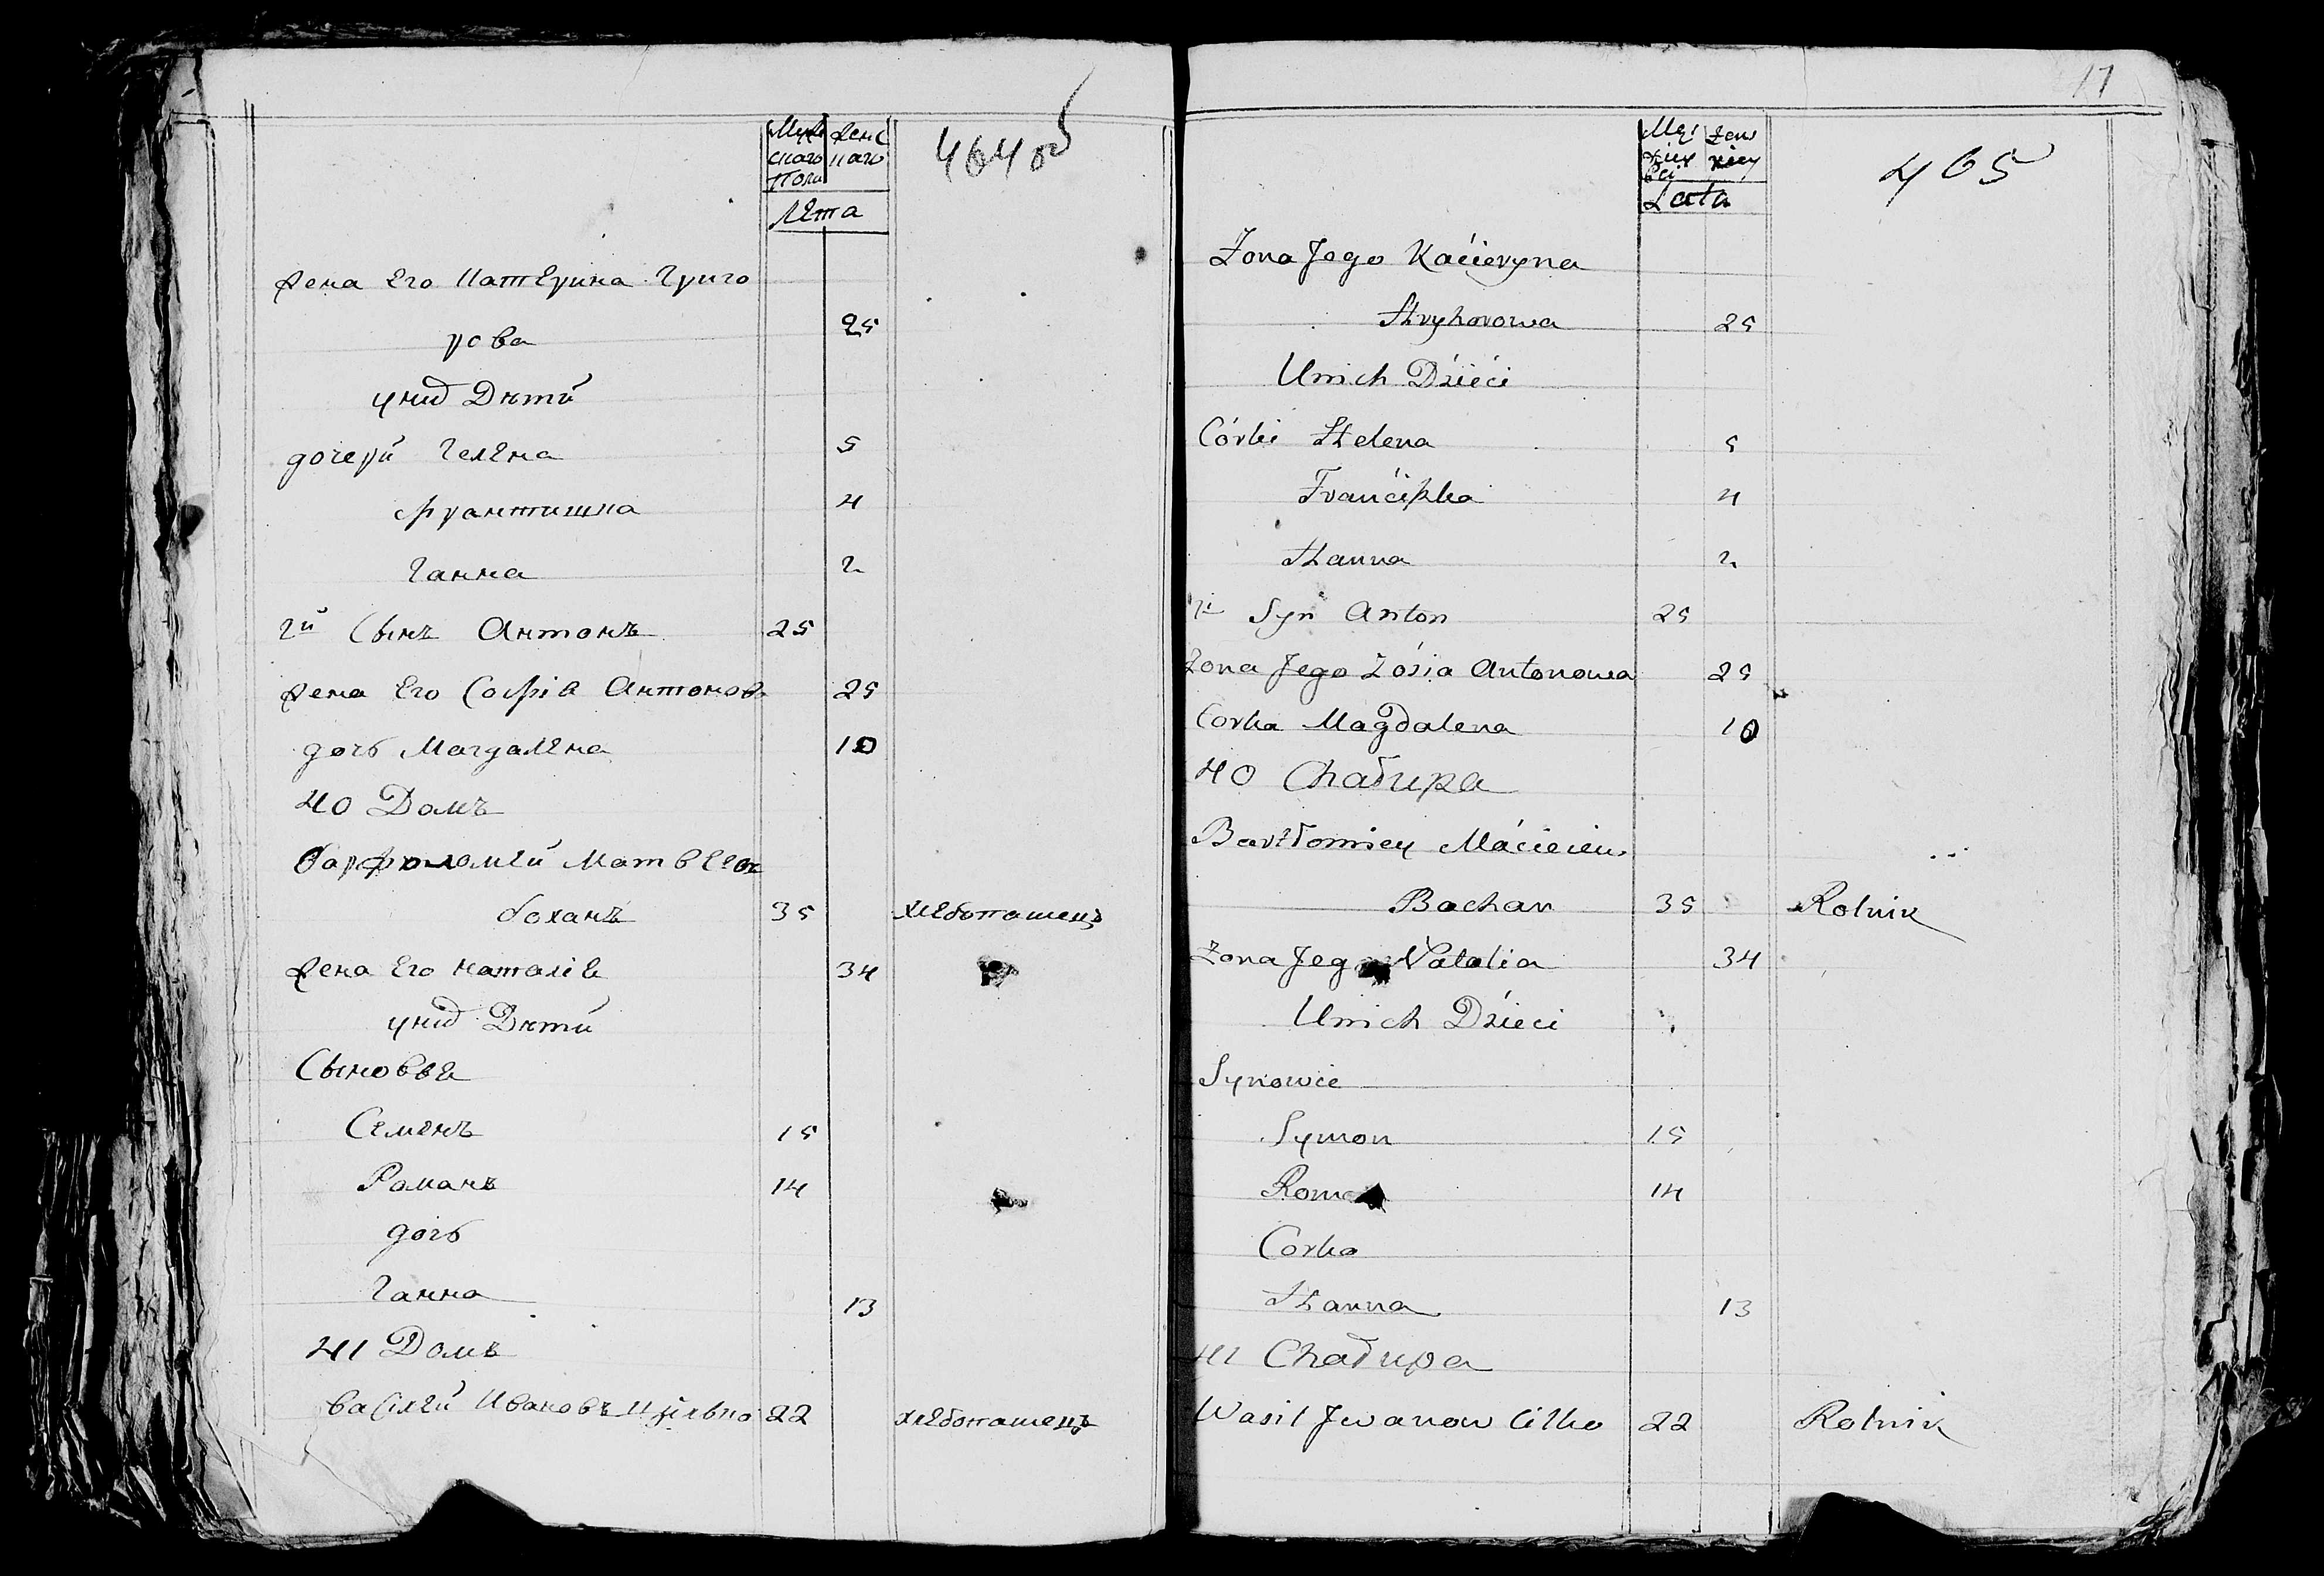 464 об
Муже
скаго
Пола
Женс
каго
Лета
жена Его Катерина Григо
рова 25
у них Дети
дочери Гелена 5
Франтишка 4
Ганна 2
2й Сынъ Антонъ 25
жена Его Софіа Антонов 25
дочь Магдалена 10
40 Домъ
Варфоломей Матвеев
боханъ 35 хлебопашецъ
жена Его наталіа 34
у них Дети
Сыновья
Семенъ 15
Романъ 14
дочь
Ганна 13
41 Домъ
Василей Ивановъ 22 хлебопашецъ
17
465
Lata
Zona Jego Kacieryna
Hryhorowa 25
Unich Dzieci
Córki Helena 5
Franciszka 4
Hanna 2
2i Syn Anton 25
Zona Jego Zósia Antonowa 25
Corka Magdalena 10
40 Chałupa
Bartłomiey Macieiew
Bachan 35 Rolnik
Zona Jego Natalia 34
Unich Dzieci
Synowie
Symon 15
Roman 14
Corka
Hanna 13
41 Chałupa
Wasil Jwanow Cilko 22 Rolnik